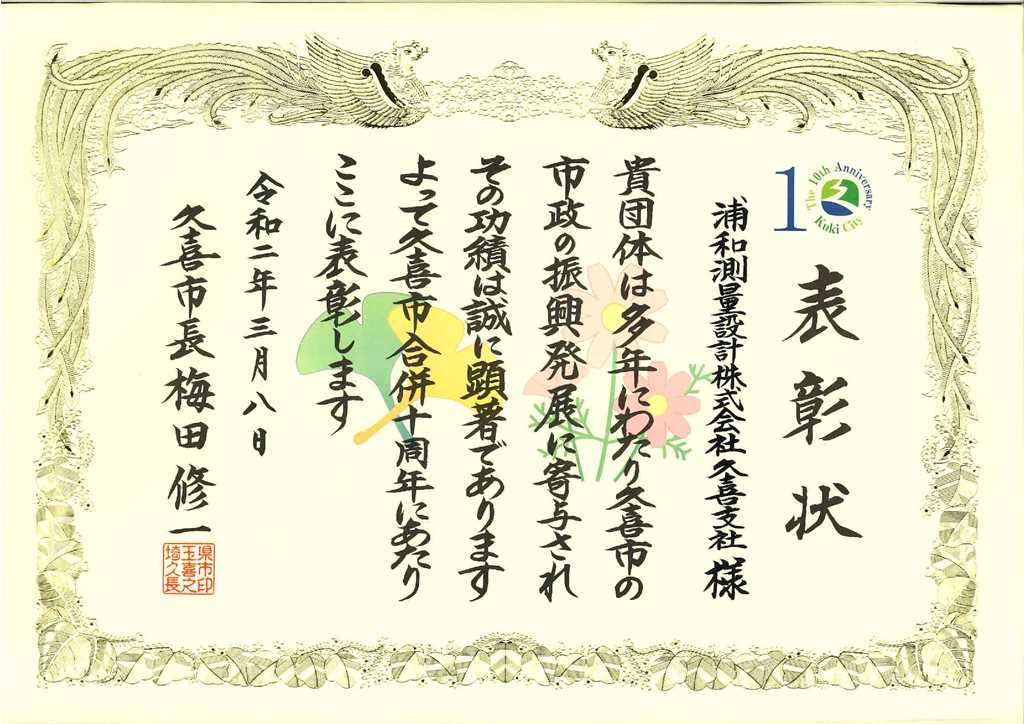 10
The 10th Anniversary
Kuki City
表彰状
浦和測量設計株式会社久喜支社 様
貴団体は多年にわたり久喜市の
市政の振興発展に寄与され
その功績は誠に顕著であります
よって久喜市合併十周年にあたり
ここに表彰します
令和二年三月八日
久喜市長 梅田修一
埼玉県久喜市長之印